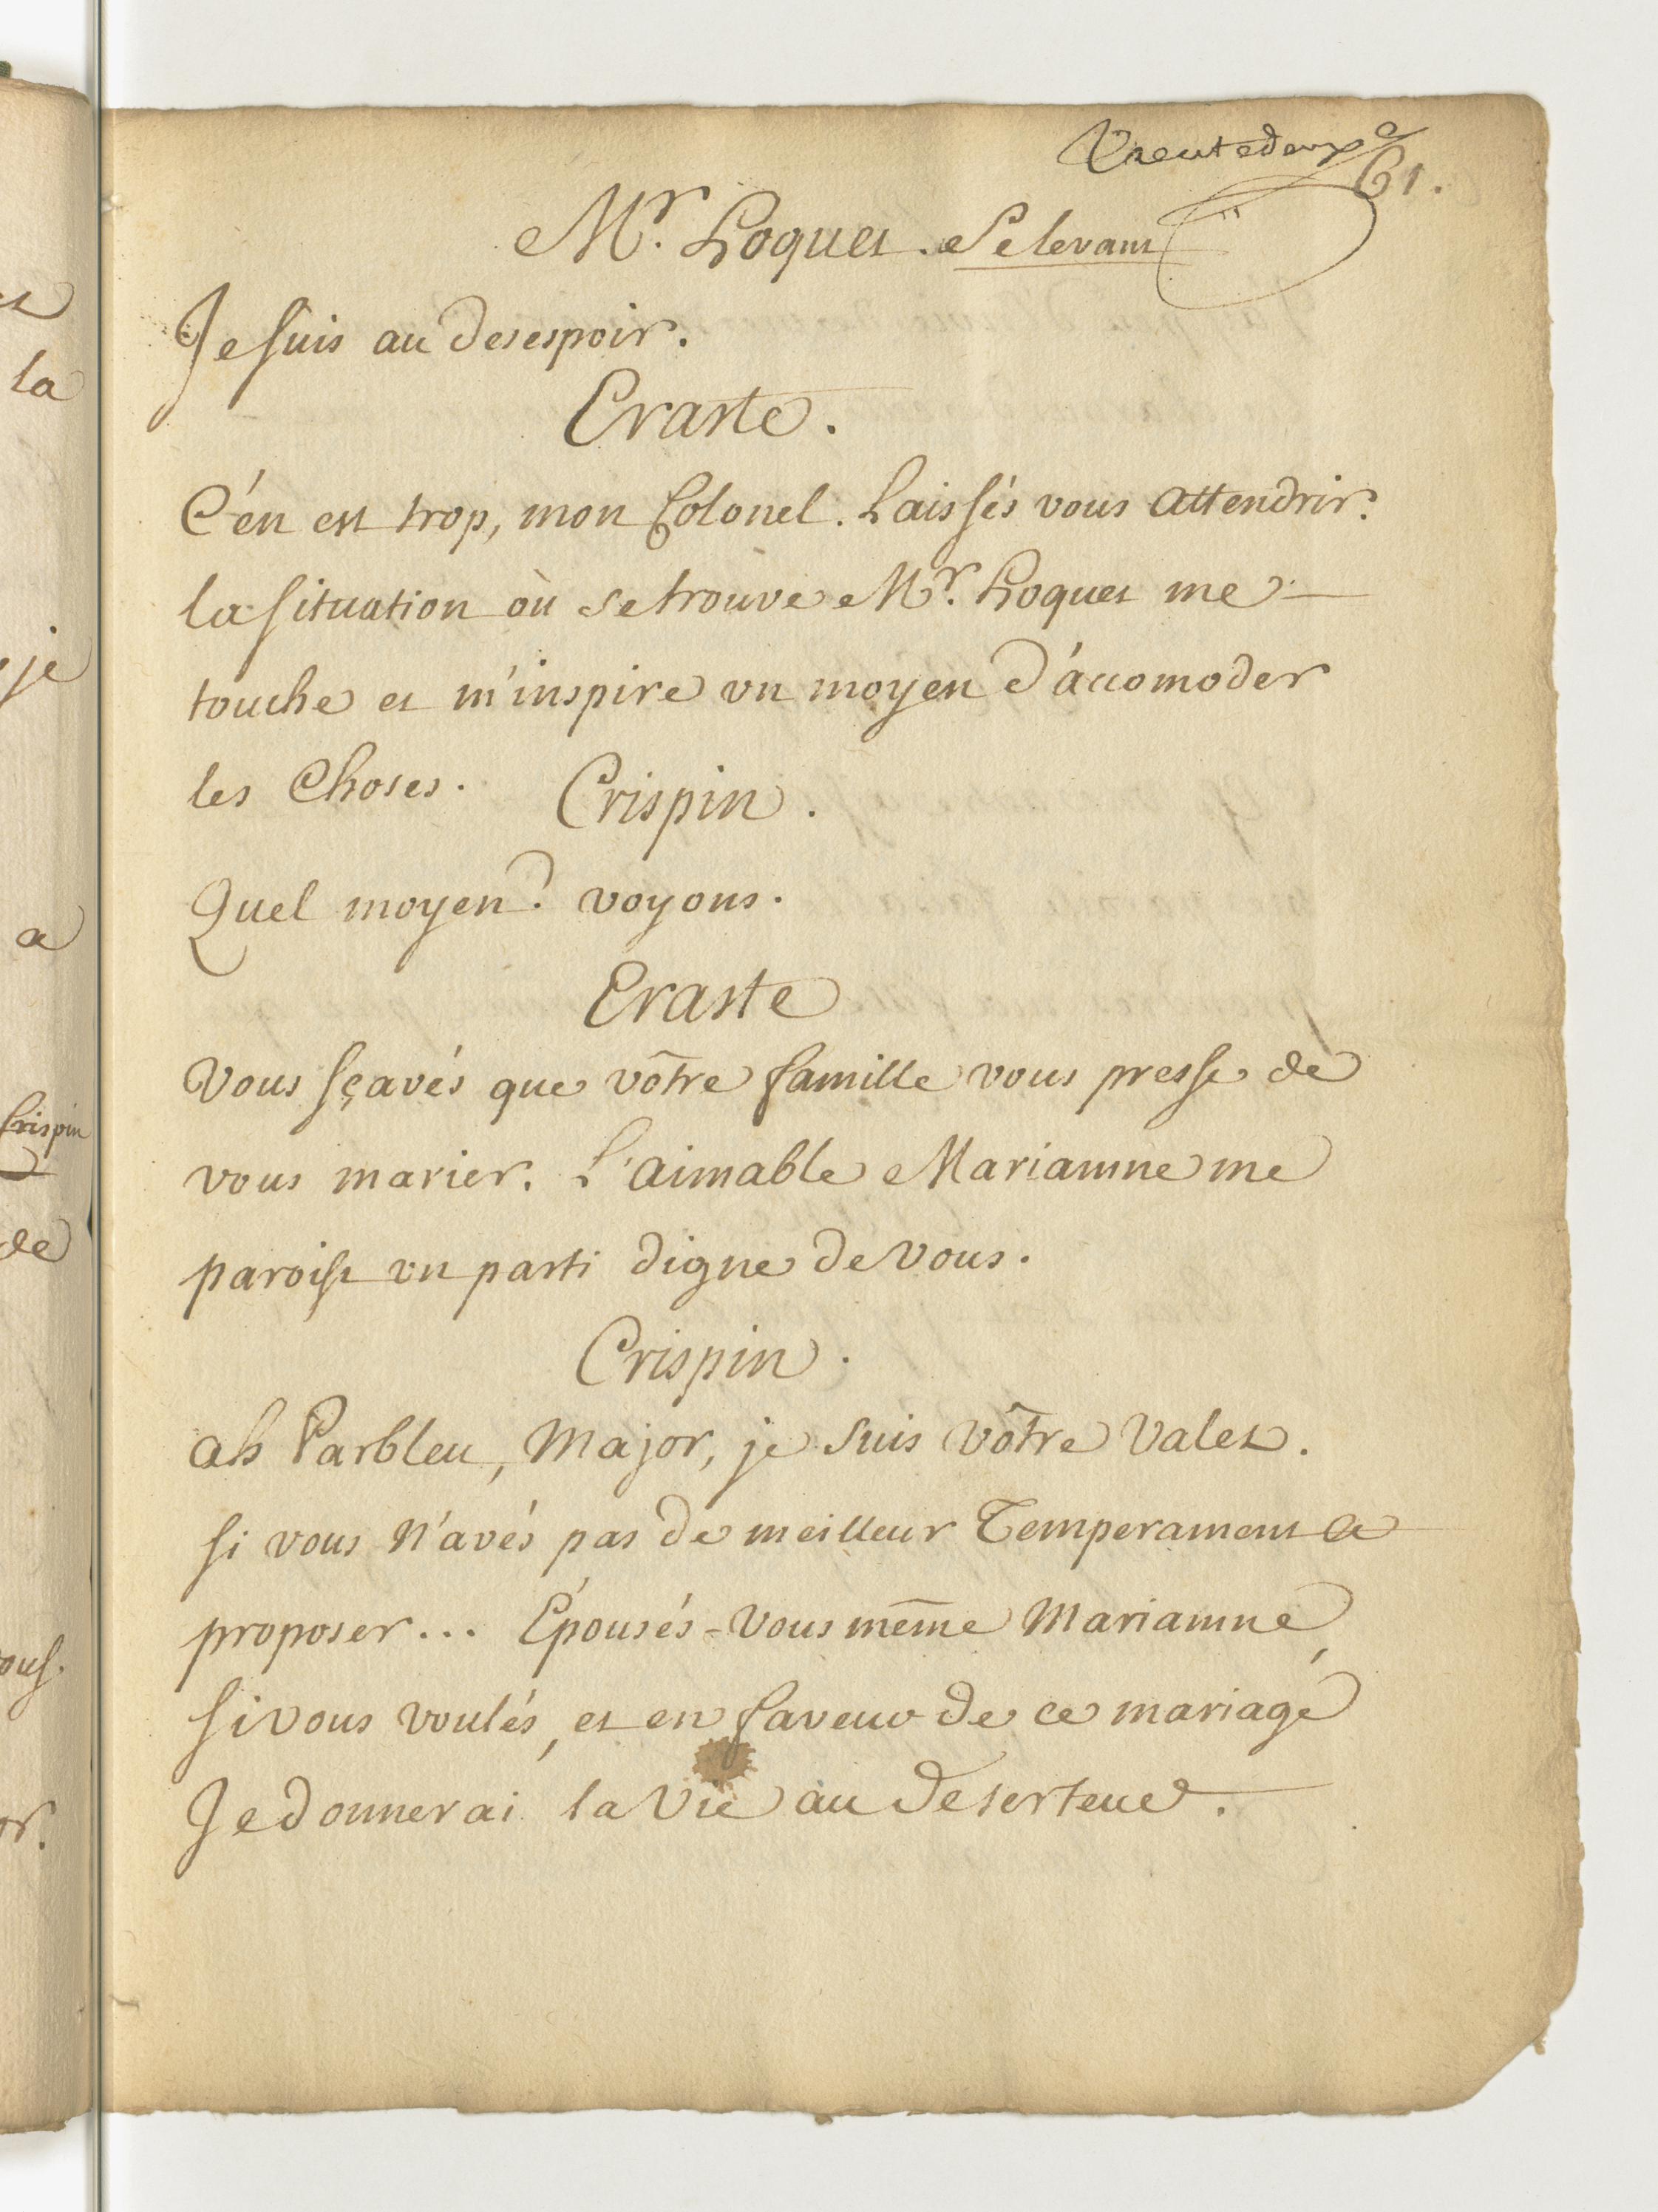 trente deux
61.
Mr. Loquet. Se levant
Je suis au desespoir.
Eraste.
C'én est trop, mon Colonel. Laissés vous attendrir.
la situation où se trouve Mr. Loquet me
touche et m'inspire un moyen d'acomoder
les Choses.
Crispin.
Quel moyen? voyons.
Eraste
Vous sçavés que vôtre famille vous presse de
vous marier. L'aimable Mariamne me
paroist un parti digne de vous.
Crispin.
ah Parbleu, Major, je suis vôtre Valet.
si vous n'avés pas de meilleur Temperament a
proposer... Épousés-vous même Mariamne,
si vous voulés, et en faveur de ce mariage
Je donnerai la vie au deserteur.
la
je
a
Crispin
de
or.